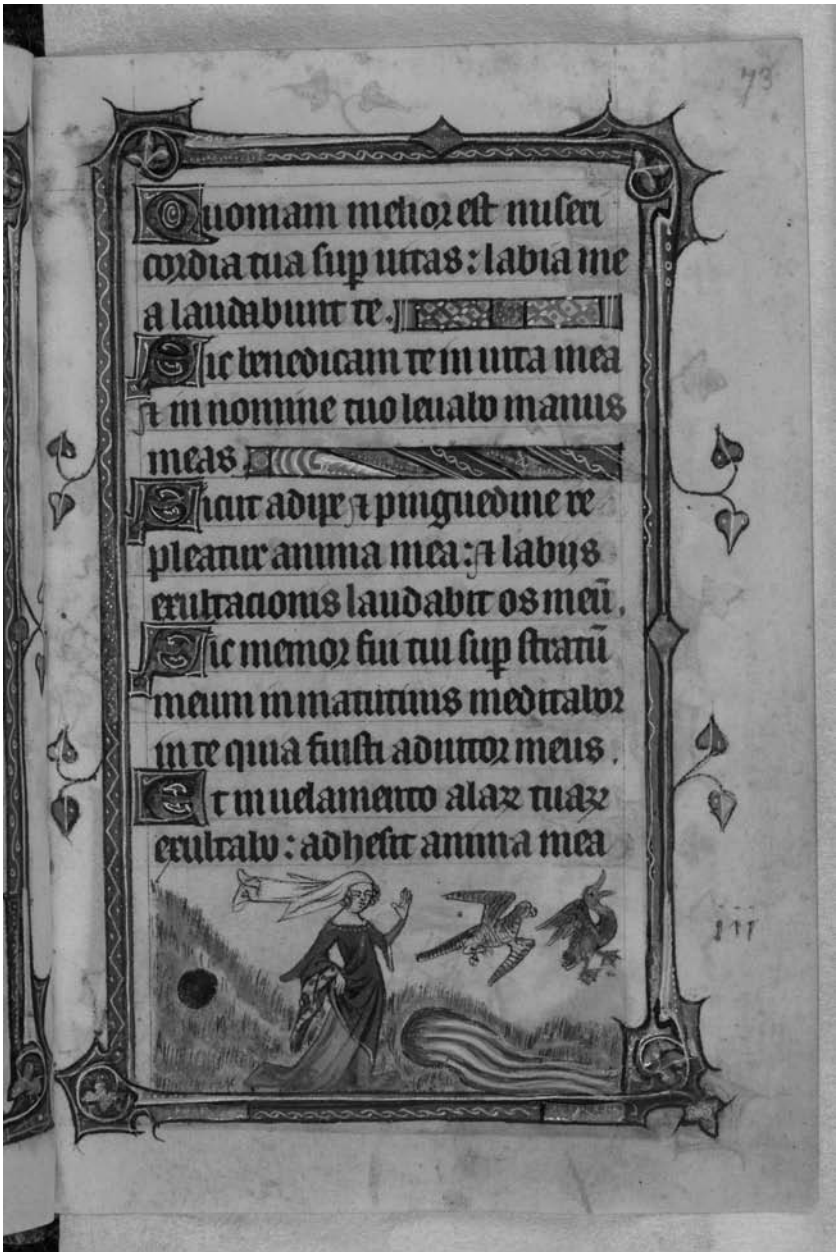 73
Quoniam melior est miseri
cordia tua sup uitas : labia me
a laudabunt te .
Sic benedicam te in uita mea
⁊ in nomine tuo leuabo manus
meas .
Sicut adipe ⁊ pinguedine re
pleatur anima mea : ⁊ labijs
exultacionis laudabit os meū .
Sic memor fui tui sup stratū
meum in matutinis meditabor
in te quia fuisti adiutor meus .
Et in uelamento alaꝝ tuaꝝ
exultabo : adhesit anima mea
iii